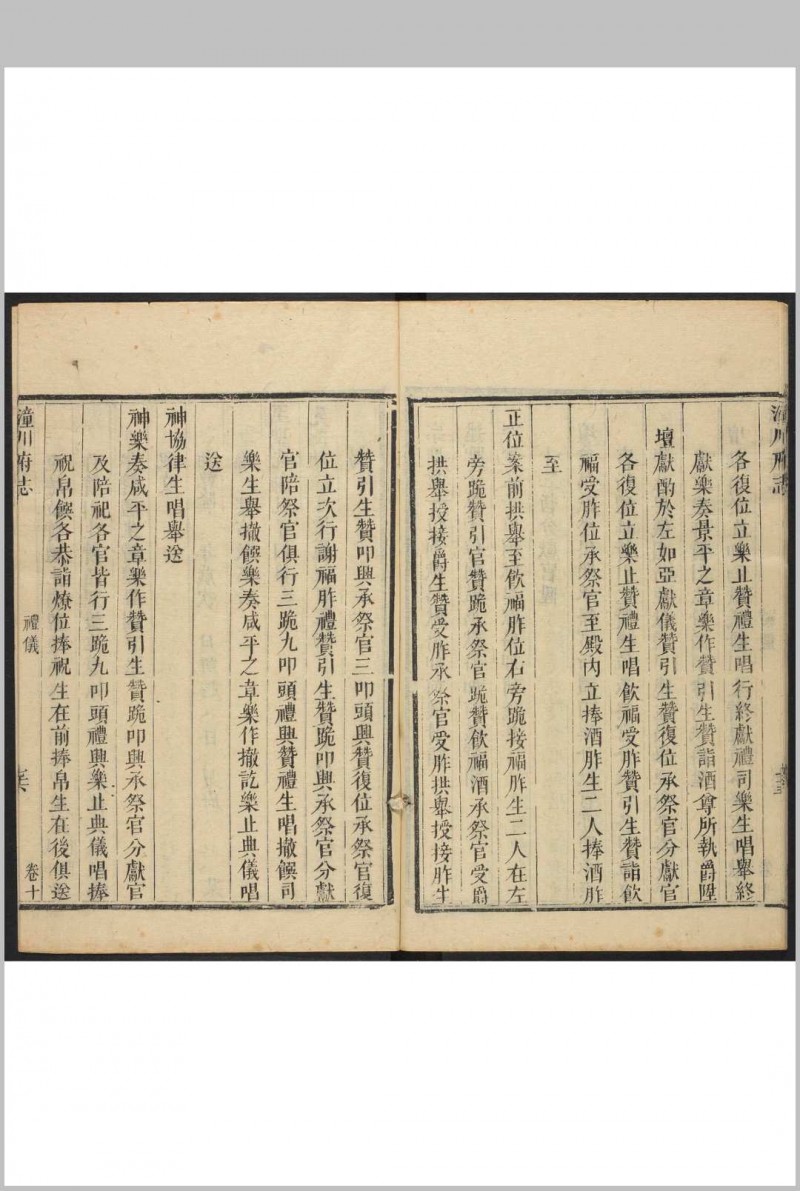 潼川府志
各復位立樂止贊禮生唱行終獻禮司樂生唱舉終
獻樂奏景平之章樂作贊引生贊詣酒尊所執爵陞
壇獻酌於左如亞獻儀贊引生贊復位承祭官分獻官
各復位立樂止贊禮生唱飲福受胙贊引生贊詣飲
福受胙位承祭官至殿內立捧酒胙生二人捧酒胙
至
正位案前拱舉至飲福胙位右旁跪接福胙生二人在左
旁跪贊引官贊跪承祭官跪贊飲福酒承祭官受爵
拱舉授接爵生贊受胙承祭官受胙拱舉授接胙生
贊引生贊叩興承祭官三叩頭興贊復位承祭官復
位立次行謝福胙禮贊引生贊跪叩興承祭官分獻
官陪祭官俱行三跪九叩頭禮興贊禮生唱撤饌司
樂生舉撤饌樂奏咸平之章樂作撤訖樂止典儀唱
送
神協律生唱舉送
神樂奏咸平之章樂作贊引生贊跪叩興承祭官分獻官
及陪祀各官皆行三跪九叩頭禮興樂止典儀唱捧
祝帛饌各恭詣燎位捧祝生在前捧帛生在後俱送
潼川府志
禮儀
卷十